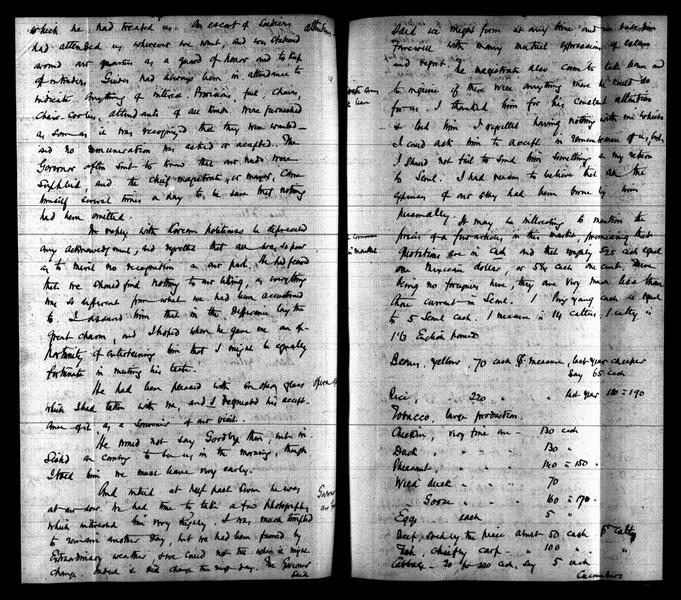 which he had treated us. An escort of soldiers
had attended us wherever we went, and was stationed
around our quarters as a guard of honor and to keep
off intruders. Guides had always been in attendance to
indicate anything of interest. Provisions, fuel, chairs,
chair-coolies, attendants of all kinds were furnished
as soon as it was recognized that they were wanted —
and no remuneration was asked or accepted. The
Governor often sent to know that our needs were
supplied and the chief magistrate, or mayor, came
himself several times a day to be sure that nothing
had been omitted.
In reply, with Korean politeness he deprecated
any acknowledgment, and regretted that all was so poor
as to merit no recognition on our part. He had feared
that we should find nothing to our liking, as everything
was so different from what we had been accustomed
to. I assured him that in the difference lay the
great charm, and I hoped when he gave me an op-
portunity of entertaining him that I might be equally
fortunate in meeting his taste.
He had been pleased with an opera glass
which I had taken with me, and I requested his accept-
ance of it as a souvenir of our visit.
He would not say Goodbye then, but in-
sisted on coming to see us in the morning, though
I told him we must leave very early.
And indeed at half past seven he was
at our door. We had time to take a few photographs
which interested him very highly. I was much tempted
to remain another day, but we had been favored by
extraordinary weather, and we could not tell when it might
change. Indeed it did change the next day. The Governor
said
said we might form at any time and we bade him
farewell with many mutual expressions of esteem
and regret. The magistrate also came to take leave and
to inquire if there were anything more he could do
for us. I thanked him for his constant attention
& told him I regretted having nothing with me which
I could ask him to accept in remembrance of us, but
I should not fail to send him something on my return
to Seoul. I had reason to believe that all the
expenses of our stay had been borne by him
personally.
It may be interesting to mention the
prices of a few articles in this market, premising that
quotations are in cash and that roughly 525 cash equal
one Mexican dollar, or 5¼ cash one cent. There
being no foreigners here, they are very much less than
those current in Seoul. 1 Pyng yang cash is equal
to 5 Seoul cash. 1 measure is 14 catties. 1 catty is
1⅓ English pound.
Beans, yellow, 70 cash measure, last year cheaper
say 65 cash
Rice, 220 " " last year 180 = 190
Tobacco, large production.
Chicken, very fine one — 130 cash
Duck " " " 130 "
Pheasant, " " " 140 = 150 "
Wild duck " " 70
" Goose " " 160 = 170 "
Eggs each 5 "
Beef, sold by the piece about 50 cash catty
Fish, chiefly carp " 100 " "
Cabbage — 20 for 100 cash, say 5 cash
Cucumbers